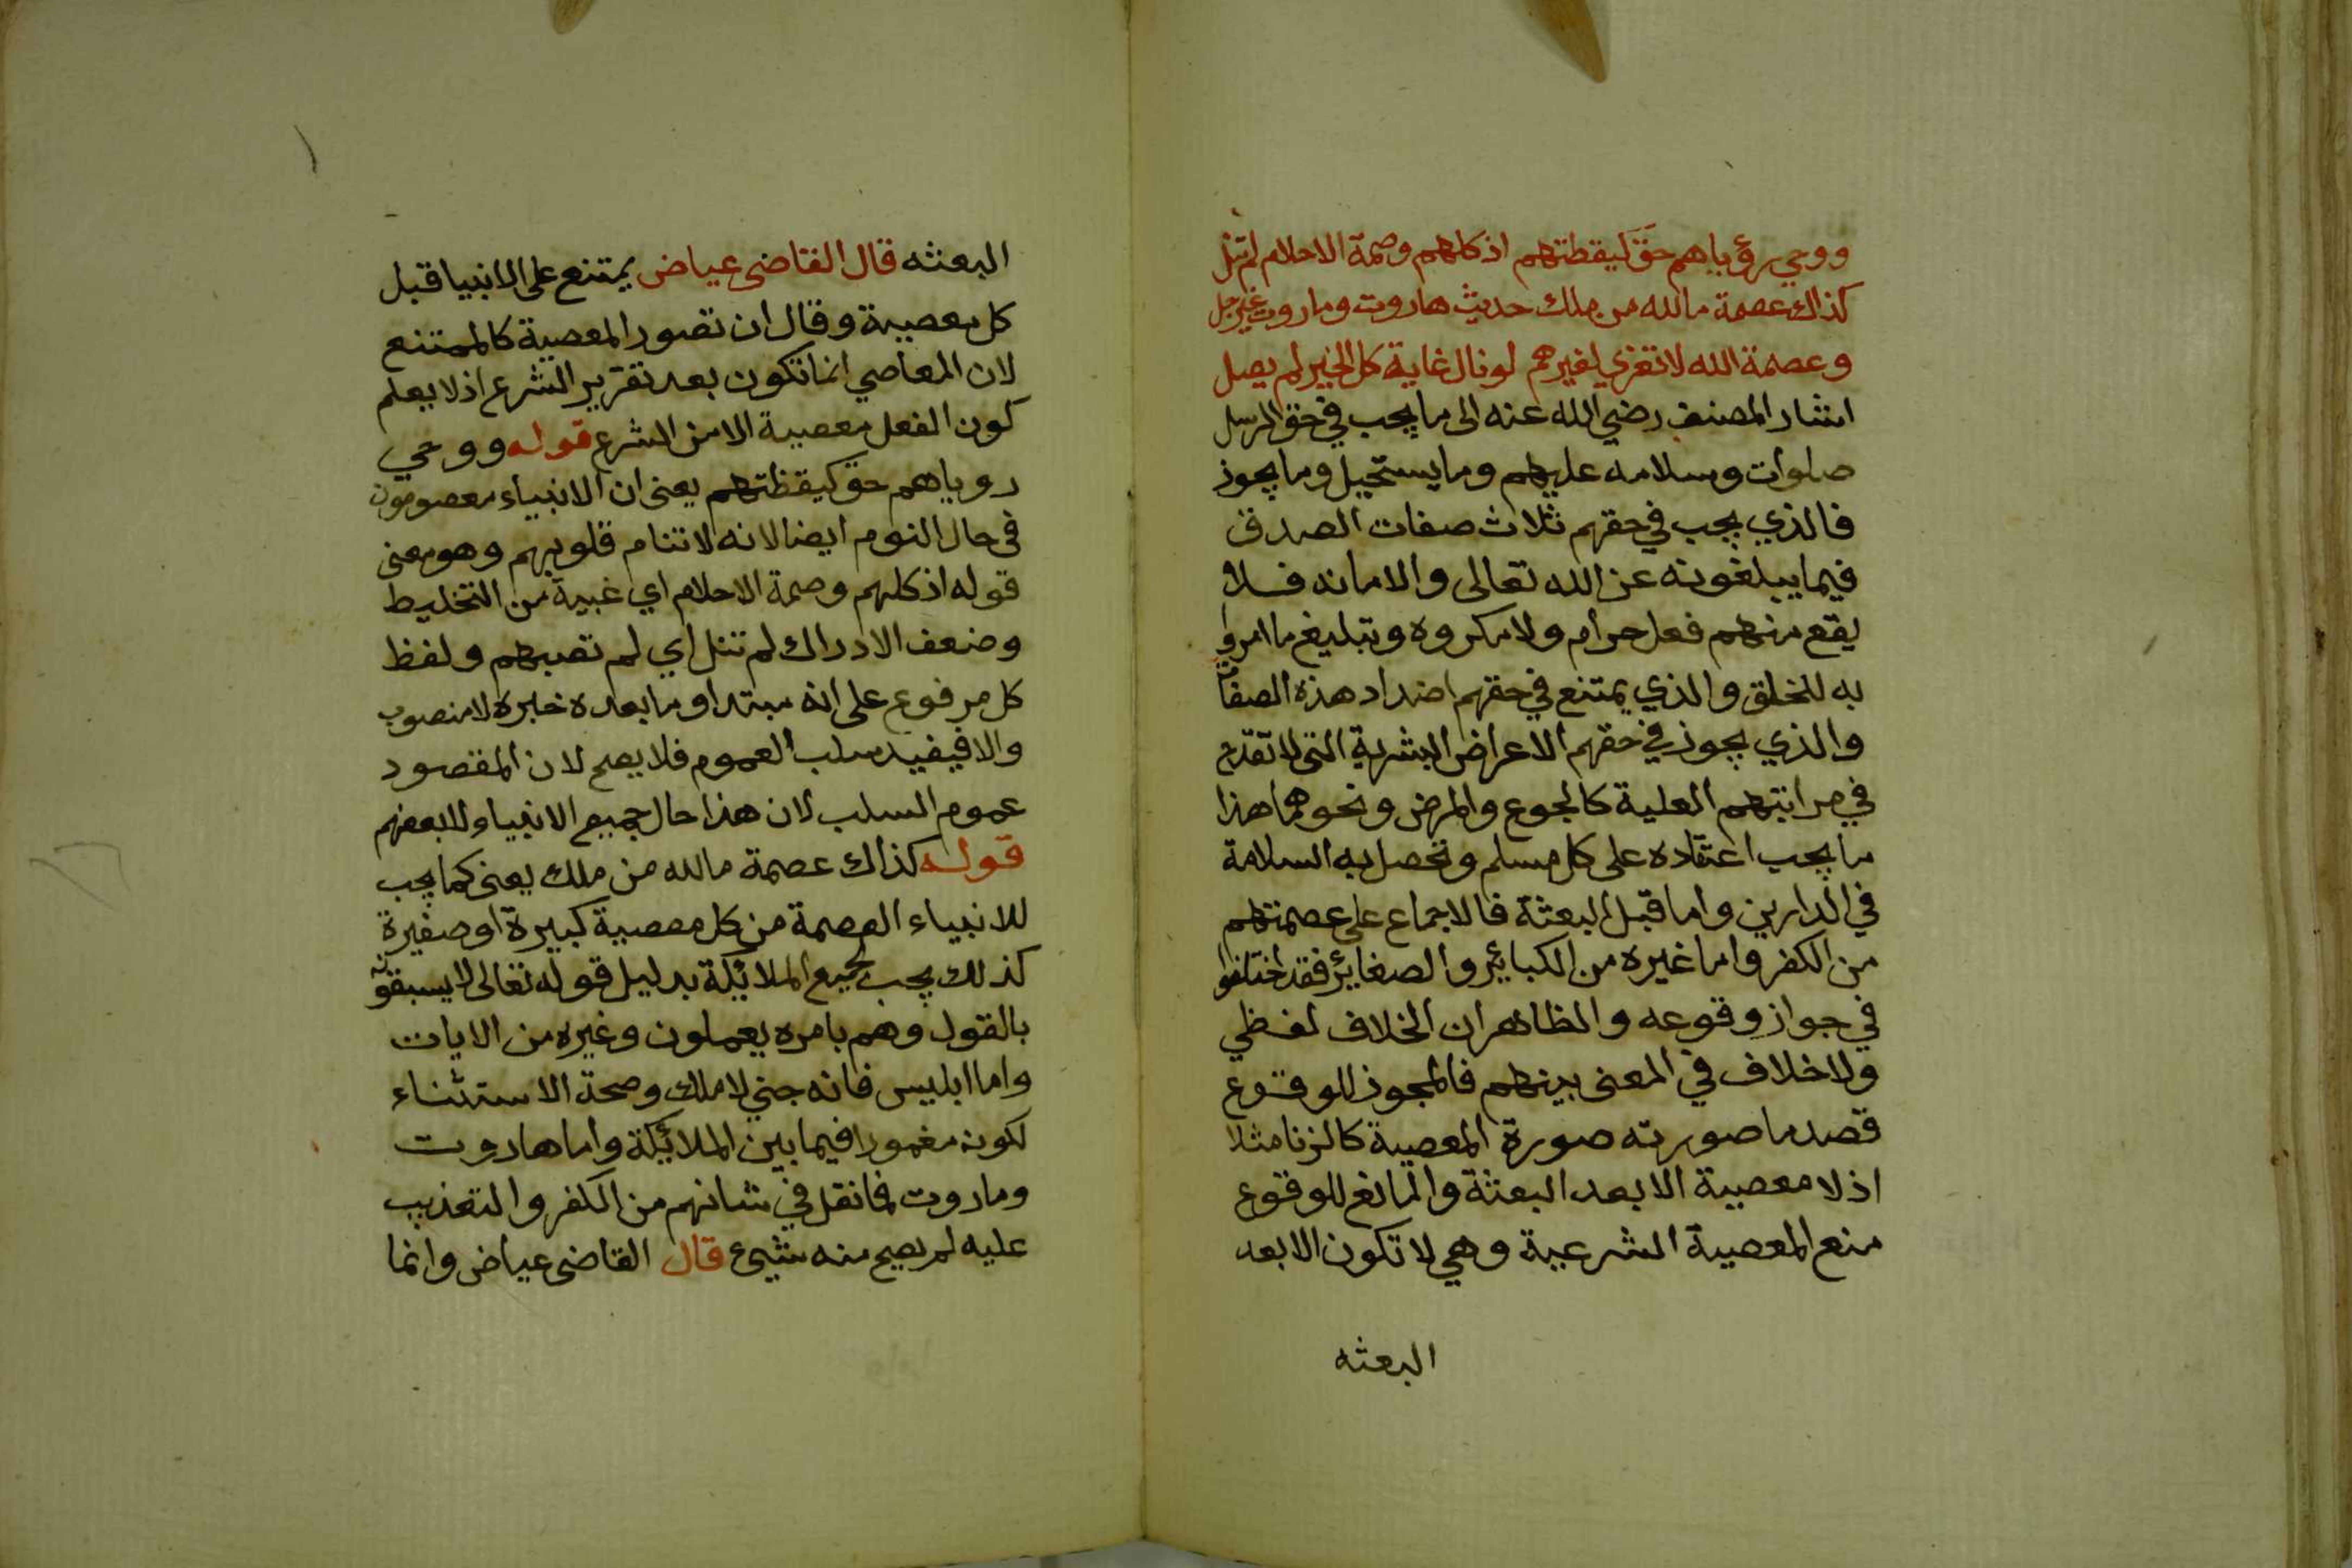 ووحي رؤياهم حق كيقظتهم اذ كلهم وصمة الاحلام لم تنل
كذاك عصمة ما لله من ملك حديث هاروت وماروت غير جل
وعصمة الله لا تعزي لغيرهم لو نال غاية كل الخير لم يصل
اشار المصنف رضي الله عنه الى ما يجب في حق الرسل
صلوات وسلامه عليهم وما يستحيل وما يجوز
فالذي يجب في حقهم ثلاث صفات الصدق
فيما يبلغونه عن الله تعالى والامانه فلا
يقع منهم فعل حرام ولا مكروه وتبليغ ما امروا
به للخلق والذي يمتنع في حقهم اضداد هذه الصفات
والذي يجوز في حقهم الاعراض البشرية التي لا تقدح
في مراتبهم العلية كالجوع والمرض ونحوهما هذا
ما يجب اعتقاده على كل مسلم وتحصل به السلامة
في الدارين واما قبل البعثة فالاجماع على عصمتهم
من الكفر واما غيره من الكبائر والصغائر فقد اختلفوا
في جواز وقوعه والظاهر ان الخلاف لفظي
ولا خلاف في المعنى بينهم فالمجوز للوقوع
قصد ما صورته صورة المعصية كالزنا مثلا
اذ لا معصية الا بعد البعثة والمانع للوقوع
منع المعصية الشرعية وهي لا تكون الا بعد
البعثه
البعثه قال القاضى عياض يمتنع على الانبيا قبل
كل معصية وقال ان تصور المعصية كالممتنع
لان المعاصي انما تكون بعد تقرير الشرع اذ لا يعلم
كون الفعل معصية الا من الشرع قوله ووحي
روياهم حق كيقظتهم يعنى ان الانبياء معصومون
في حال النوم ايضا لانه لا تنام قلوبهم وهو معنى
قوله اذ كلهم وصمة الاحلام اي غيبة من التخليط
وضعف الادراك لم تنل اي لم تصبهم ولفظ
كل مرفوع على انه مبتدا وما بعده خبره لا منصوب
والا فيفيد سلب العموم فلا يصح لان المقصود
عموم السلب لان هذا حال جميع الانبياء لا بعضهم
قوله كذاك عصمة ما لله من ملك يعنى كما يجب
للانبياء العصمة من كل معصية كبيرة او صغيرة
كذلك يجب لجميع الملائكة بدليل قوله تعالى لا يسبقونه
بالقول وهم بامره يعملون وغيره من الايات
واما ابليس فانه جني لا ملك وصحة الاستثناء
لكونه مغمورا فيما بين الملائكة واما هاروت
وماروت فما نقل في شانهم من الكفر والتعذيب
عليه لم يصح منه شيىء قال القاضى عياض وانما